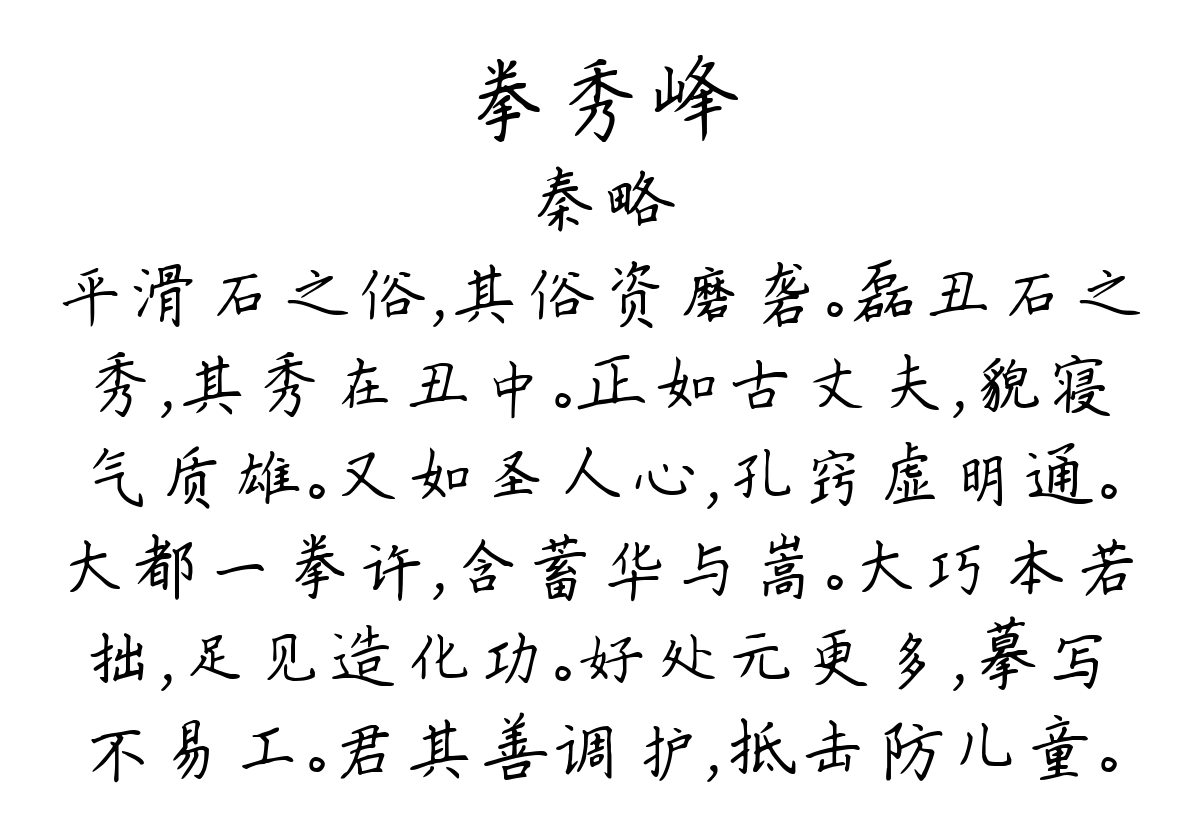 拳秀峰
秦略
平滑石之俗,其俗资磨砻。磊丑石之
秀,其秀在丑中。正如古丈夫,貌寝
气质雄。又如圣人心,孔窍虚明通。
大都一拳许,含蓄华与嵩。大巧本若
拙,足见造化功。好处元更多,摹写
不易工。君其善调护,抵击防儿童。